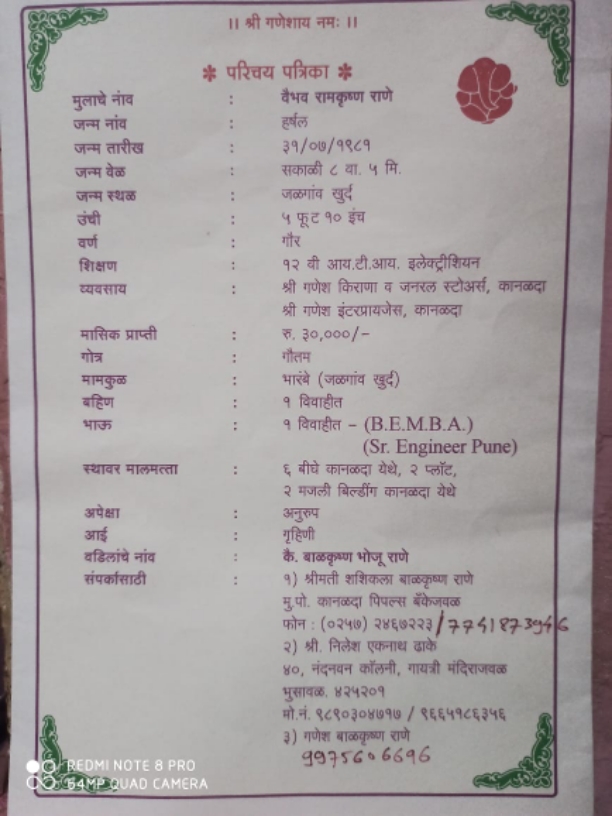 ।। श्री गणेशाय नमः ।।
✻ परिचय पत्रिका ✻
मुलाचे नांव : वैभव रामकृष्ण राणे
जन्म नांव : हर्षल
जन्म तारीख : ३१/०७/१९८१
जन्म वेळ : सकाळी ८ वा. ५ मि.
जन्म स्थळ : जळगांव खुर्द
उंची : ५ फूट १० इंच
वर्ण : गौर
शिक्षण : १२ वी आय.टी.आय. इलेक्ट्रीशियन
व्यवसाय : श्री गणेश किराणा व जनरल स्टोअर्स, कानळदा
श्री गणेश इंटरप्रायजेस, कानळदा
मासिक प्राप्ती : रु. ३०,०००/-
गोत्र : गौतम
मामकुळ : भारंबे (जळगांव खुर्द)
बहिण : १ विवाहीत
भाऊ : १ विवाहीत - (B.E.M.B.A.)
(Sr. Engineer Pune)
स्थावर मालमत्ता : ६ बीघे कानळदा येथे, २ प्लॉट,
२ मजली बिल्डींग कानळदा येथे
अपेक्षा : अनुरुप
आई : गृहिणी
वडिलांचे नांव : कै. बाळकृष्ण भोजू राणे
संपर्कासाठी : १) श्रीमती शशिकला बाळकृष्ण राणे
मु.पो. कानळदा पिपल्स बँकेजवळ
फोन : (०२५७) २४६७२२३ / 7741873946
२) श्री. निलेश एकनाथ ढाके
४०, नंदनवन कॉलनी, गायत्री मंदिराजवळ
भुसावळ. ४२५२०१
मो.नं. ९८९०३०४७१७ / ९६६५१८६३५६
३) गणेश बाळकृष्ण राणे
9975606696
REDMI NOTE 8 PRO
64MP QUAD CAMERA